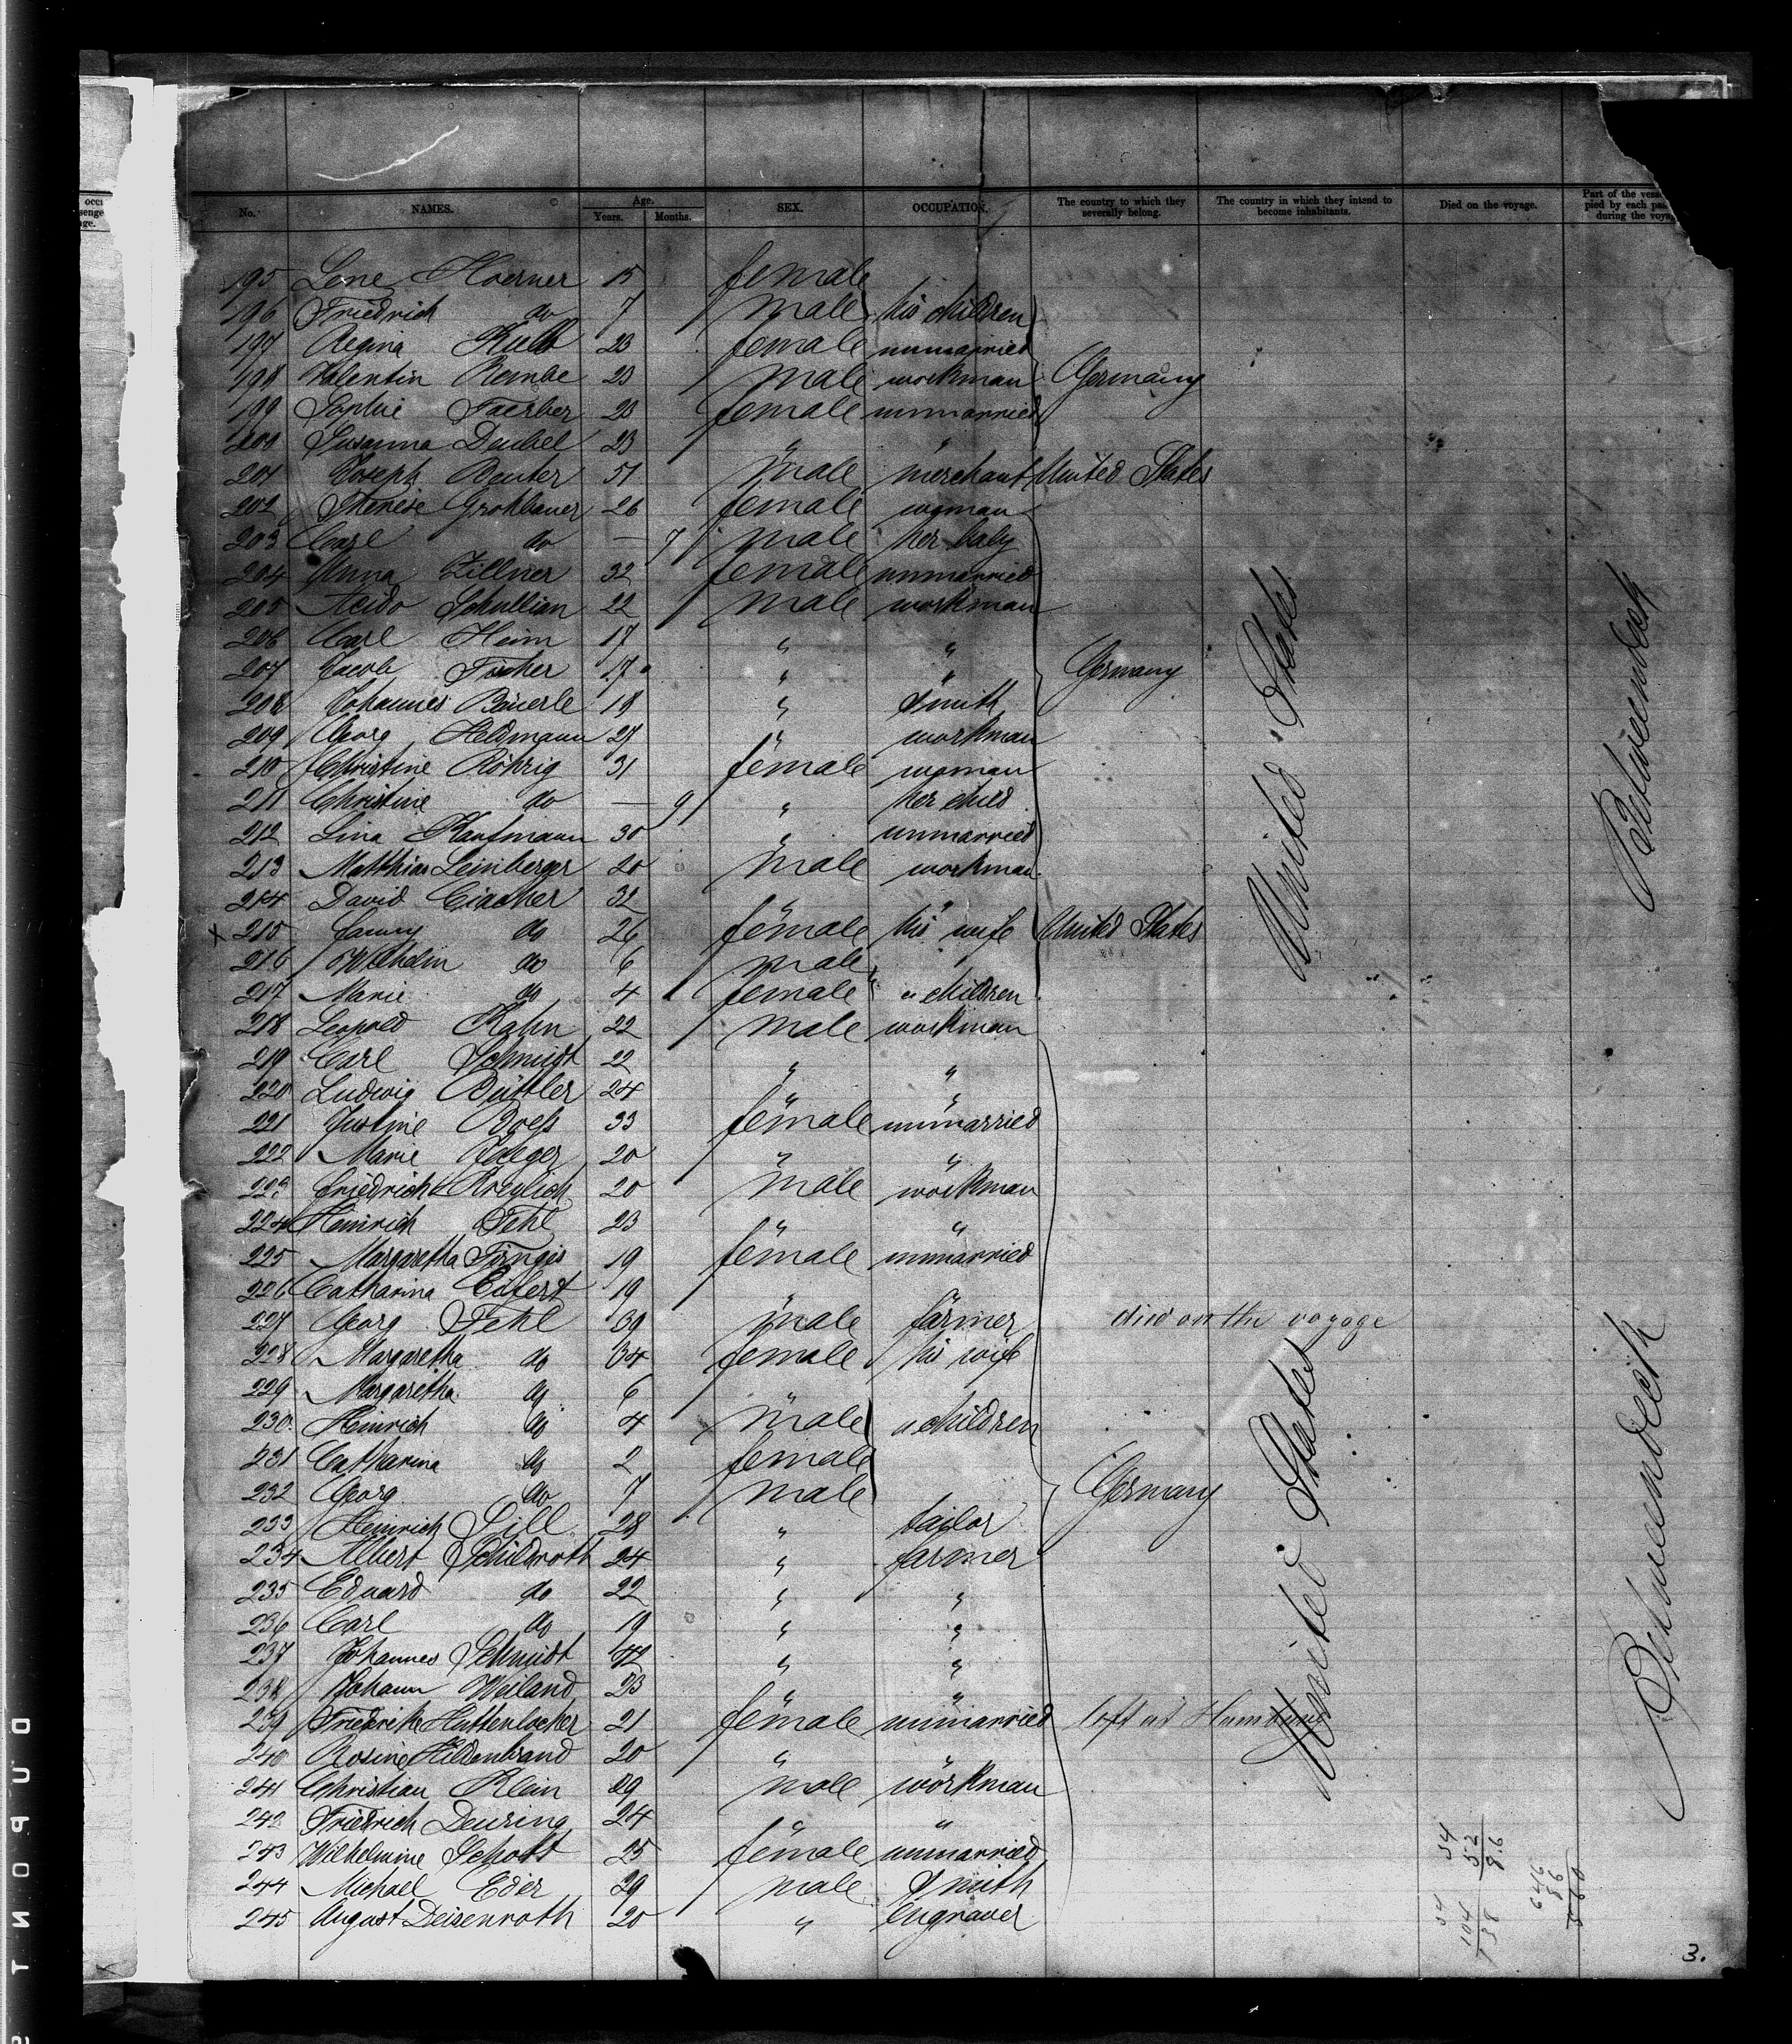 No. NAMES. Age. Years. Months. SEX. OCCUPATION. The country to which they severally belong. The country in which they intend to become inhabitants. Died on the voyage. Part of the vess pied by each pas during the voya
195 Lene Hoerner 15 female
196 Friedrich do 7 male his children
197 Regina Kull 23 female unmarried
198 Valentin Rembe 23 male workman Germany
199 Sophie Faerber 23 female unmarried
200 Susanna Deubel 23 " "
201 Joseph Beuter 51 male merchant United States
202 Therese Grohbauer 26 female woman
203 Carl do — 7 male her baby
204 Anna Zillner 32 female unmarried
205 Schullian 22 male workman
206 Carl Heim 17 " "
207 Jacob Fischer 17 " " Germany
208 Johannes Bäuerle 19 " smith
209 Georg Heldmann 27 " workman
210 Christine Röhrig 31 female woman
211 Christine do — 9 " her child
212 Lina Kaufmann 30 " unmarried
213 Matthias Leinberger 20 male workman
214 David 32 " "
x 215 Fanny do 26 female his wife United States
216 Wilhelm do 6 male
217 Marie do 4 female " children
218 Leopold Kahn 22 male workman
219 Carl Schmidt 22 " "
220 Ludwig Büttler 24 " "
221 Justine Boess 33 female unmarried
222 Marie Jaeger 20 " "
223 Friedrich Kreylich 20 male workman
224 Heinrich Fehl 23 " "
225 Margaretha 19 female unmarried
226 Catharina Eifert 19 " "
227 Georg Fehl 39 male farmer died on the voyage
228 Margaretha do 34 female his wife
229 Margaretha do 6 "
230 Heinrich do 4 male " children
231 Catharina do 2 female
232 Georg do 7 male Germany
233 Heinrich Sill 28 " tailor
234 Albert Schildwoth 24 " farmer
235 Eduard do 22 " "
236 Carl do 19 " "
237 Johannes Schmidt 42 " "
238 Johann Weiland 23 " "
239 Friedrike Huttenlocher 21 female unmarried left at Hamburg
240 Rosine Hildenbrand 20 " "
241 Christian Klein 29 male workman
242 Friedrich Deuring 24 " "
243 Wilhelmine Schott 25 female unmarried
244 Michael Eder 29 male smith
245 August Deisenroth 20 " engraver
United States
United States
Betweendeck
Betweendeck
54
52
8.6
646
86
54
104
138
3.